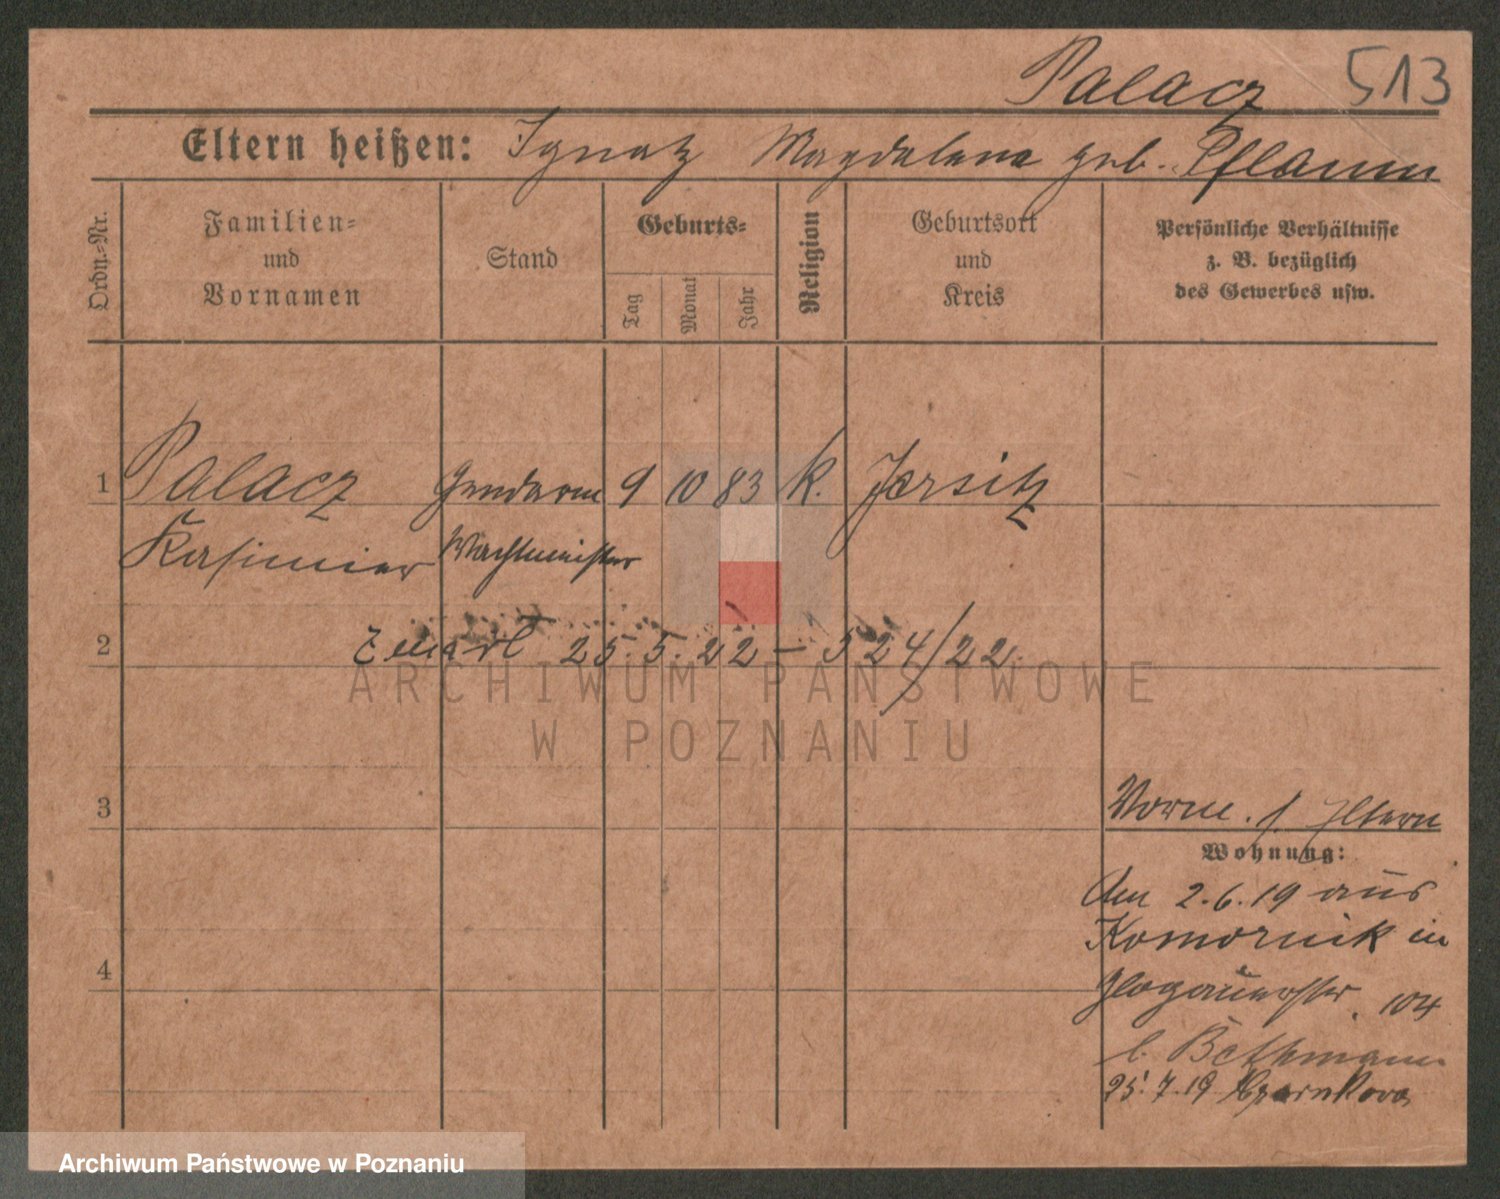 Palacz 513
Eltern heißen: Ignatz Magdalena geb. Pflaum
Ordn.-Nr.
Familien-
und
Vornamen
Stand
Geburts-
Tag
Monat
Jahr
Religion
Geburtsort
und
Kreis
Persönliche Verhältnisse
z. B. bezüglich
des Gewerbes usw.
1 Palacz Gendarm 9 10 83 k. Jersitz
Kasimier Wachtmeister
2 Zmarł 25.5.22 – 524/22.
ARCHIWUM PAŃSTWOWE
W POZNANIU
3 Vorm. s. Eltern
Wohnung:
Am 2.6.19 aus
Komornik in
4 Glogauerstr. 104
b. Bethmann
25.7.19 Czarnkowa
Archiwum Państwowe w Poznaniu